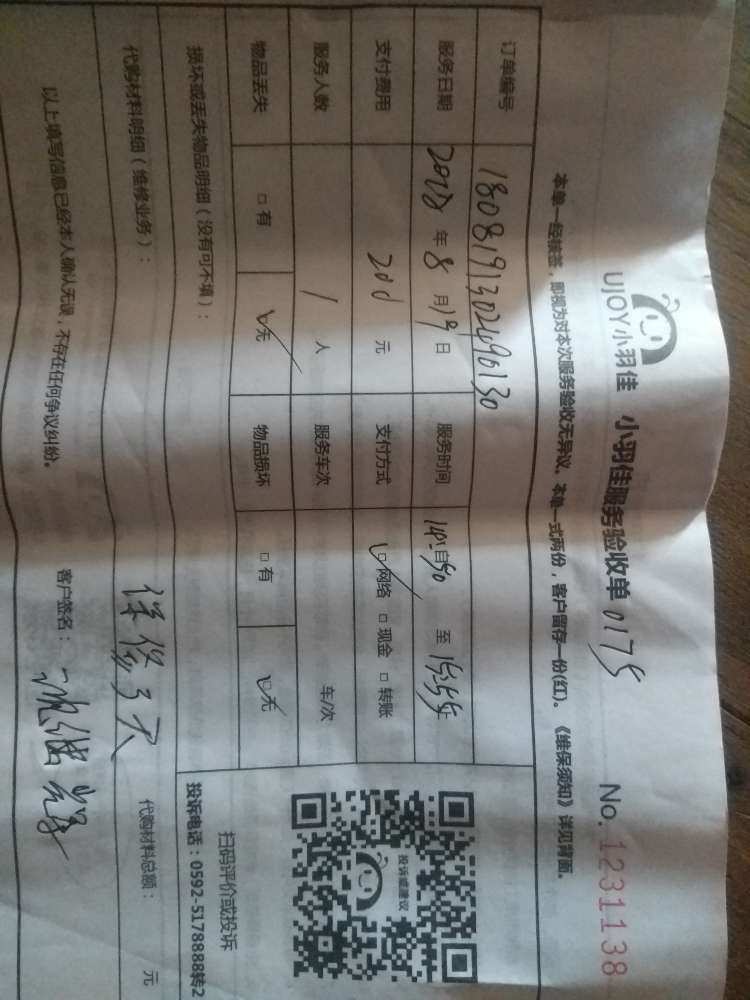 UJOY小羽佳 小羽佳服务验收单 0175 No. 1231138
本单一经核签，即视为对本次服务验收无异议。本单一式两份，客户留存一份(红)。《维保须知》详见背面。
订单编号 1808191302490130
服务日期 2018 年 8 月 19 日 服务时间 自 14:50 至 15:55 止
支付费用 200 元 支付方式 ☑网络 □现金 □转账
服务人数 1 人 服务车次 车/次
物品丢失 □有 ☑无 物品损坏 □有 ☑无
投诉或建议
扫码评价或投诉
投诉电话：0592-5178888转2
损坏或丢失物品明细（没有可不填）：
代购材料明细（维修业务）： 代购材料总额： 元
以上填写信息已经本人确认无误，不存在任何争议纠纷。 客户签名：